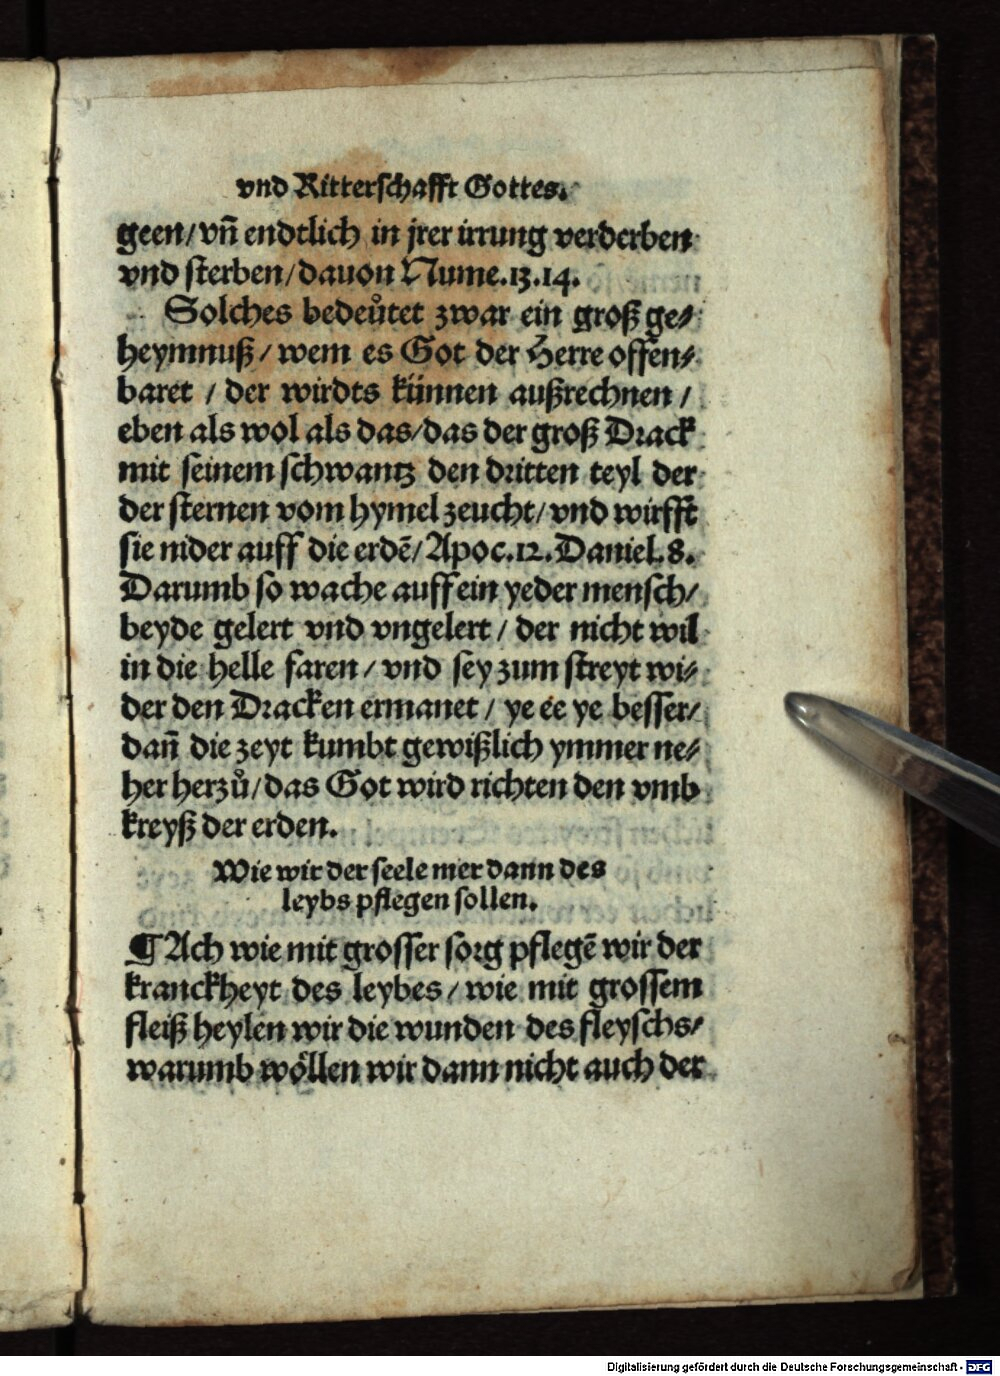 vnd Ritterschafft Gottes.
geen/vn̄ endtlich in jrer irrung verderben
vnd sterben/dauon Nume.13.14.
Solches bedeůtet zwar ein groß ge-
heymnuß/wem es Got der Herre offen-
baret / der wirdts künnen außrechnen /
eben als wol als das/das der groß Drack
mit seinem schwantz den dritten teyl der
der sternen vom hymel zeucht/vnd wirfft
sie nider auff die erdē/Apoc.12.Daniel.8.
Darumb so wache auff ein yeder mensch/
beyde gelert vnd vngelert/der nicht wil
in die helle faren/vnd sey zum streyt wi-
der den Dracken ermanet/ye ee ye besser/
dan̄ die zeyt kumbt gewißlich ymmer ne-
her herzů/das Got wird richten den vmb
kreyß der erden.
Wie wir der seele mer dann des
leybs pflegen sollen.
¶Ach wie mit grosser sorg pflegē wir der
kranckheyt des leybes/wie mit grossem
fleiß heylen wir die wunden des fleyschs/
warumb wöllen wir dann nicht auch der
Digitalisierung gefördert durch die Deutsche Forschungsgemeinschaft - DFG